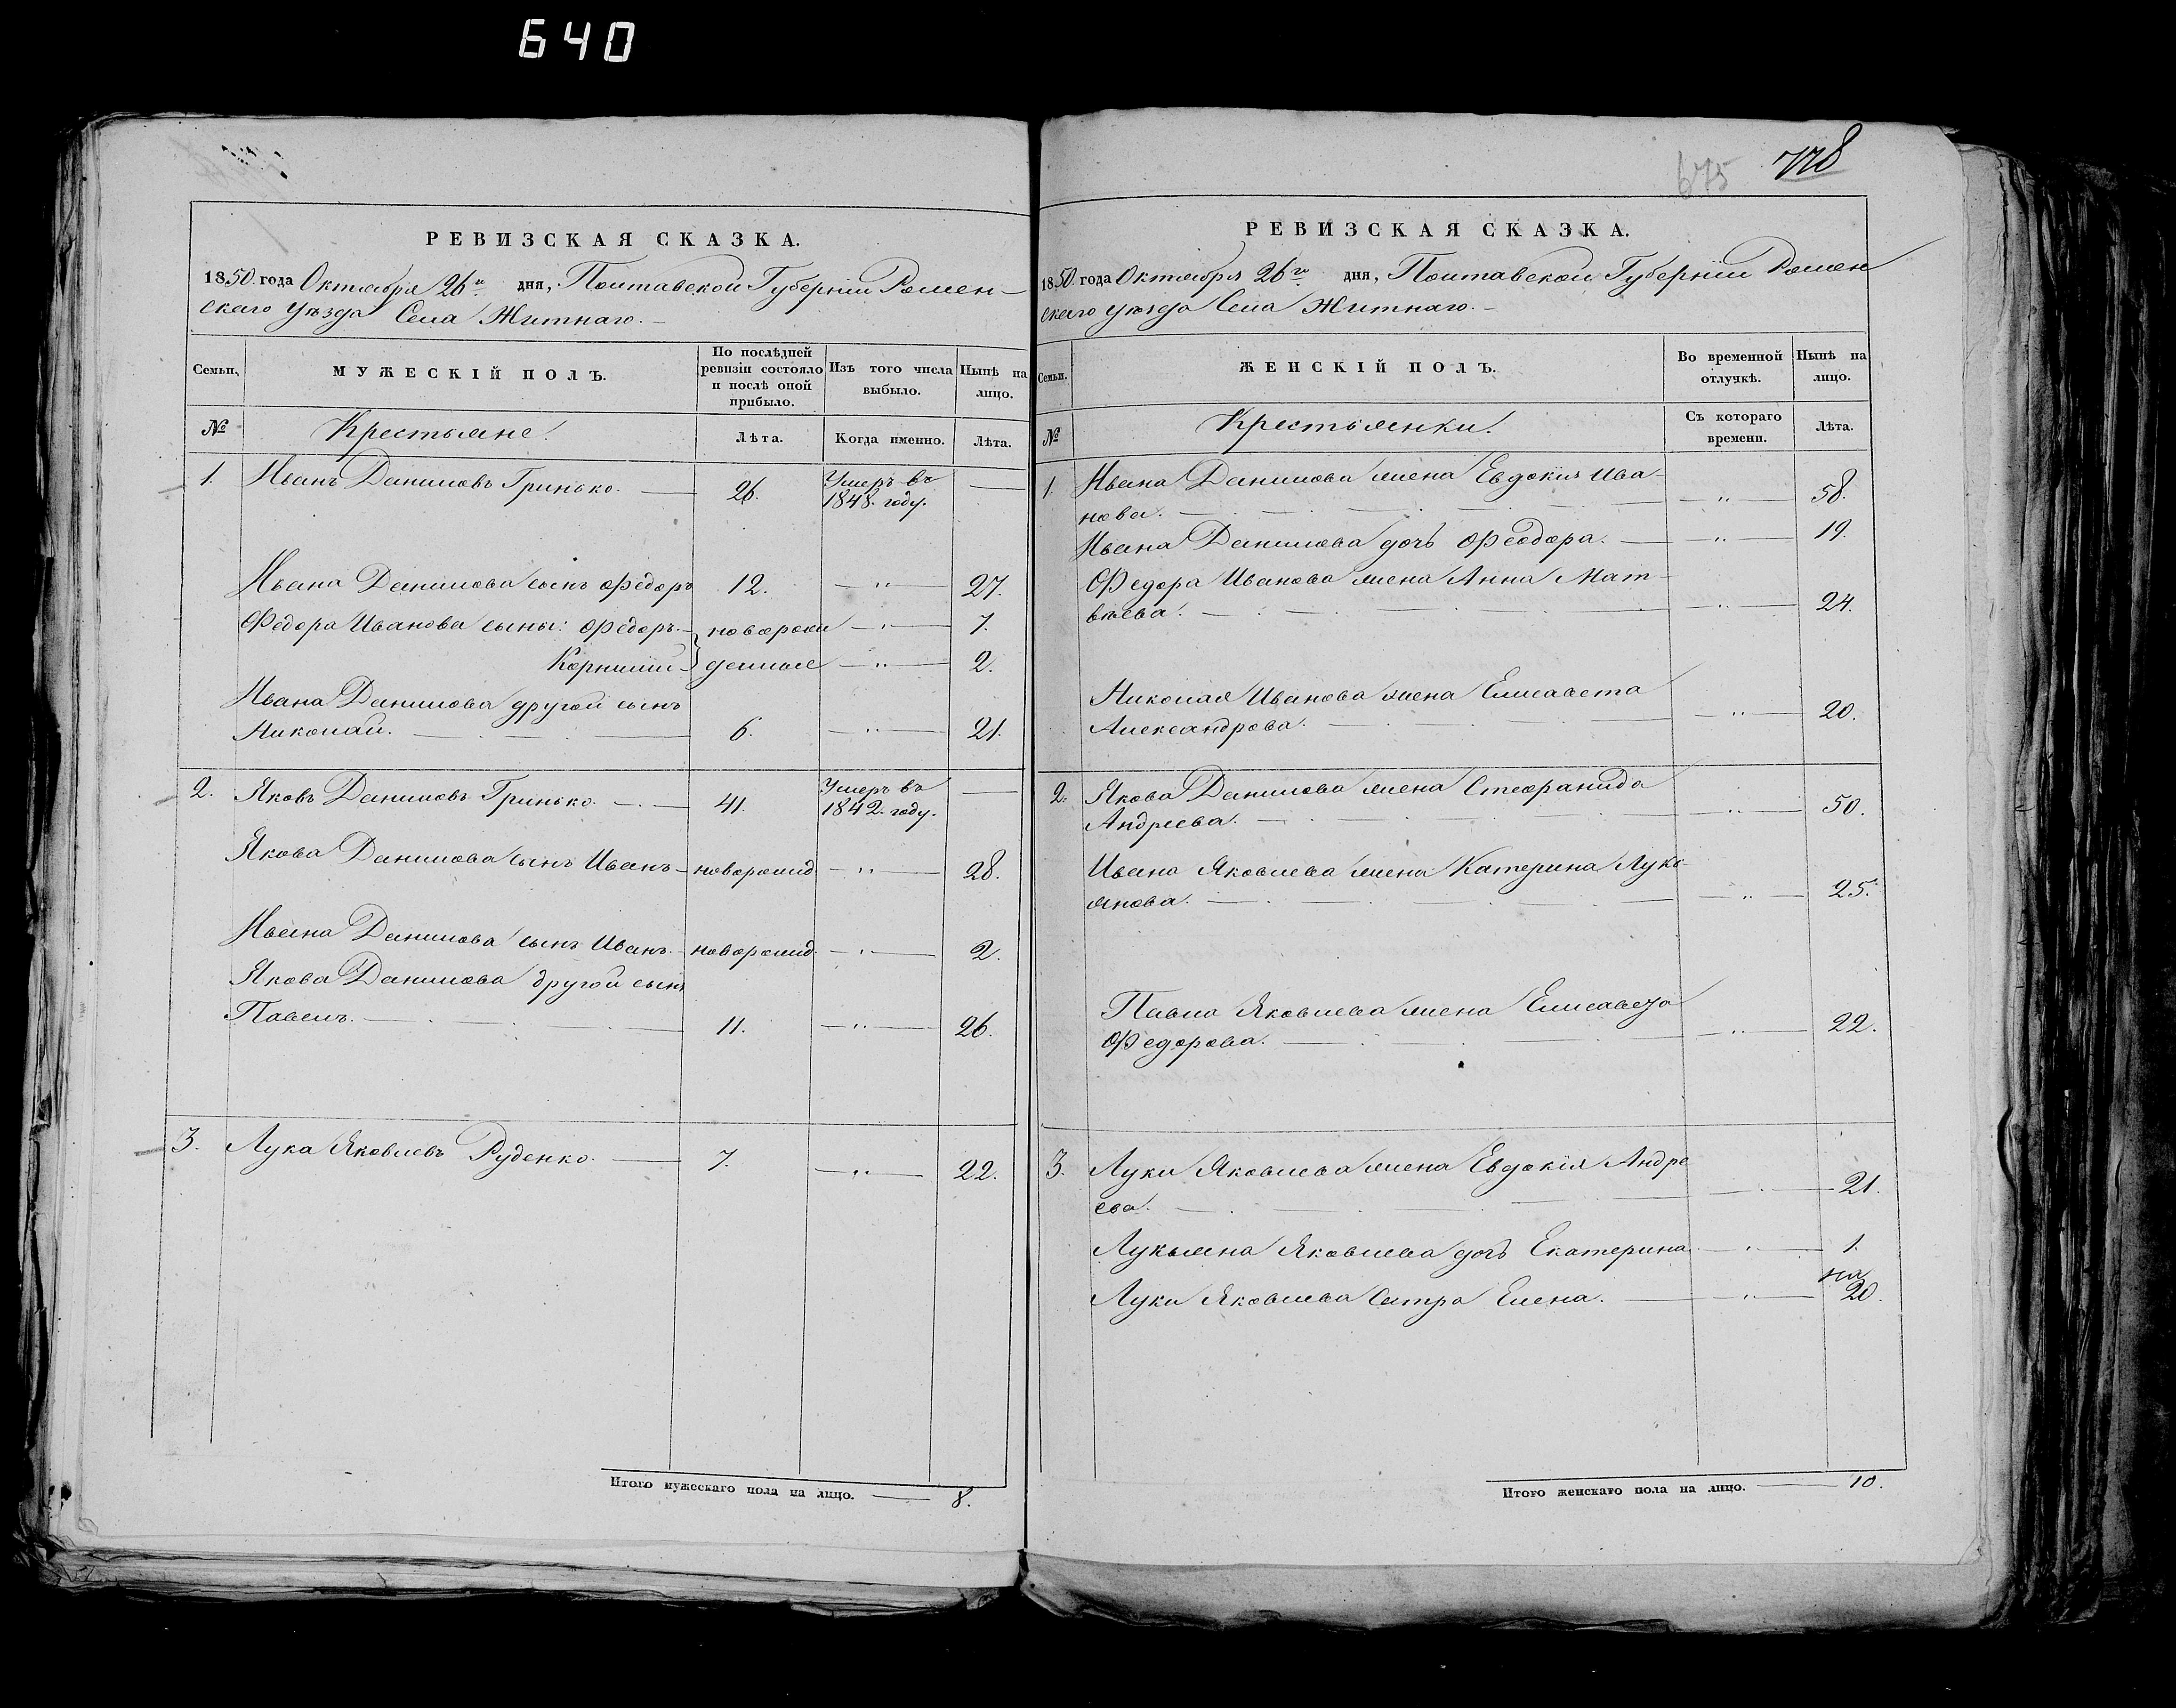 640
РЕВИЗСКАЯ СКАЗКА.
1850. года Октября 26го дня, Полтавской Губерніи Ромен-
скаго уѣзда Села Житнаго.
Семьи.
МУЖЕСКІЙ ПОЛЪ.
По послѣдней ревизіи состояло и послѣ оной прибыло.
Изъ того числа выбыло.
Нынѣ на лицо.
№
Крестьяне.
Лѣта.
Когда именно.
Лѣта.
1. Иванъ Даниловъ Гринько. 26. Умеръ въ
1848. году.
Ивана Данилова сынъ Федоръ 12. „ 27.
Федора Иванова сыны: Федоръ. новорож „ 7.
Корнилій денные „ 2.
Ивана Данилова другой сынъ
Николай. 6. „ 21.
2. Яковъ Даниловъ Гринько. 41. Умеръ въ
1842. году.
Якова Данилова сынъ Иванъ новорожд. „ 28.
Ивана Данилова сынъ Иванъ. новорожд. „ 2.
Якова Данилова другой сынъ
Павелъ. 11. „ 26.
3. Лука Яковлевъ Руденко. 7. „ 22.
Итого мужескаго пола на лицо. 8.
675 778
РЕВИЗСКАЯ СКАЗКА.
1850. года Октября 26го дня, Полтавской Губерніи Ромен
скаго уѣзда Села Житнаго.
Семьи.
ЖЕНСКІЙ ПОЛЪ.
Во временной отлучкѣ.
Нынѣ на лицо.
№
Крестьянки.
Съ котораго времени.
Лѣта.
1. Ивана Данилова жена Евдокія Ива-
нова. „ 58.
Ивана Данилова дочь Феодора. „ 19.
Федора Иванова жена Анна Мат-
вѣева. „ 24.
Николая Иванова жена Елисавета
Александрова. „ 20.
2. Якова Данилова жена Стефанида
Андреева. „ 50.
Ивана Яковлева жена Катерина Лукь
янова. „ 25.
Павла Яковлева жена Елисавета
Федорова. „ 22.
3. Луки Яковлева жена Евдокія Андре
ева. „ 21.
Лукьяна Яковлева дочь Екатерина „ 1.
Луки Яковлева Сестра Елена. „ 20.
Итого женскаго пола на лицо. 10.